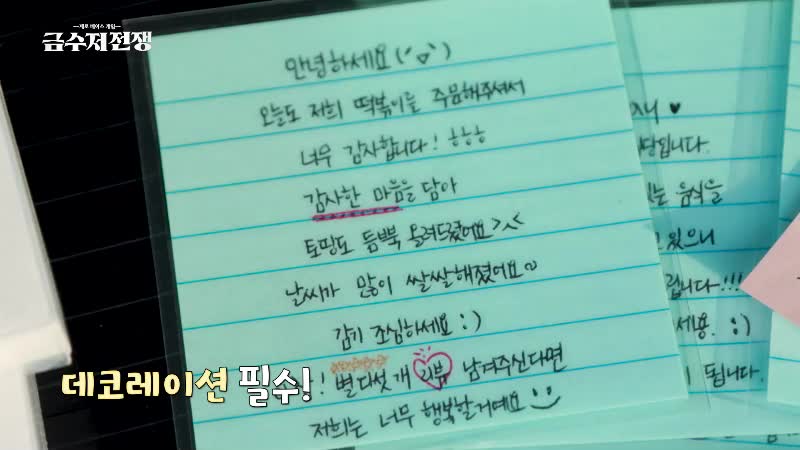 제로 베이스 게임
금수저전쟁
안녕하세요(˘ω˘)
오늘도 저희 떡볶이를 주문해주셔서
너무 감사합니다! ㅎㅎㅎ
감사한 마음을 담아
토핑도 듬뿍 올려드렸어요>.<
날씨가 많이 쌀쌀해졌어요~
감기 조심하세요 :)
! 별 다섯 개 리뷰 남겨주신다면
저희는 너무 행복할거예요
니 ♥
당됩니다.
는 음식을
고 있으니
립니다!!!
세용. :)
됩니다.
데코레이션 필수!